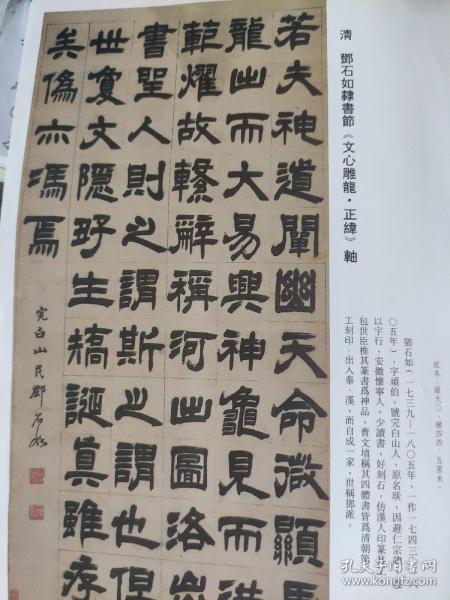 清　鄧石如隸書節《文心雕龍·正緯》軸
紙本，縱九〇，橫四四·五厘米。
鄧石如（一七三九—一八〇五年，一作一七四三
〇五年），字頑伯，號完白山人，原名琰，因避仁宗諱
以字行，安徽懷寧人。少讀書，好刻石，仿漢人印篆甚工
包世臣推其篆書爲神品，曹文埴稱其四體書皆爲清朝第
工刻印，出入秦、漢，而自成一家，世稱鄧派。
若夫神道闡幽天命微顯馬
龍出而大易興神龜見而洪
範燿故繫辭稱河出圖洛出
書聖人則之謂斯之謂也但
世敻文隱好生矯誕真雖存
矣偽亦馮焉
完白山民鄧石如
孔夫子旧书网